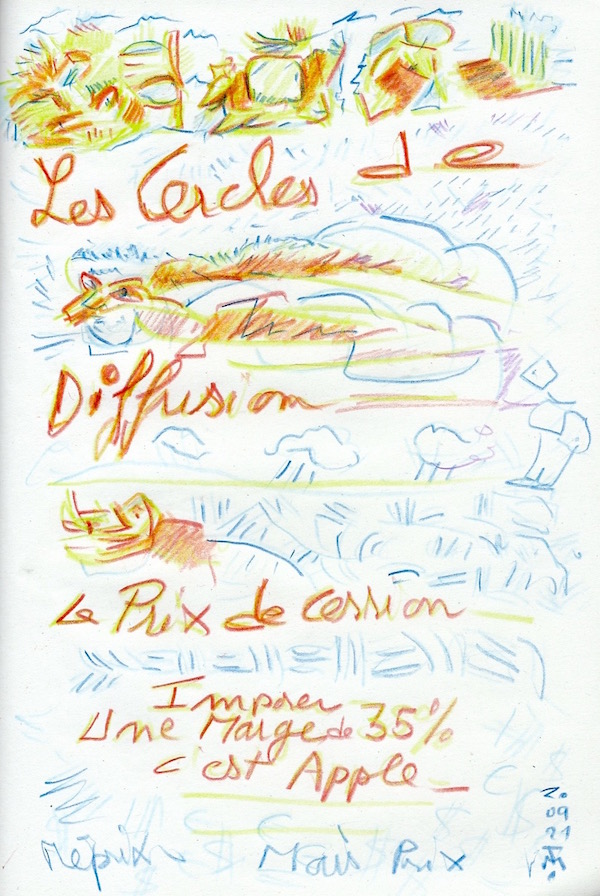 Les Cercles de
Diffusion
Le Prix de Cession
Imposer
Une Marge de 35%
c'est Apple
20
09
21
Méprix
Mais Prix